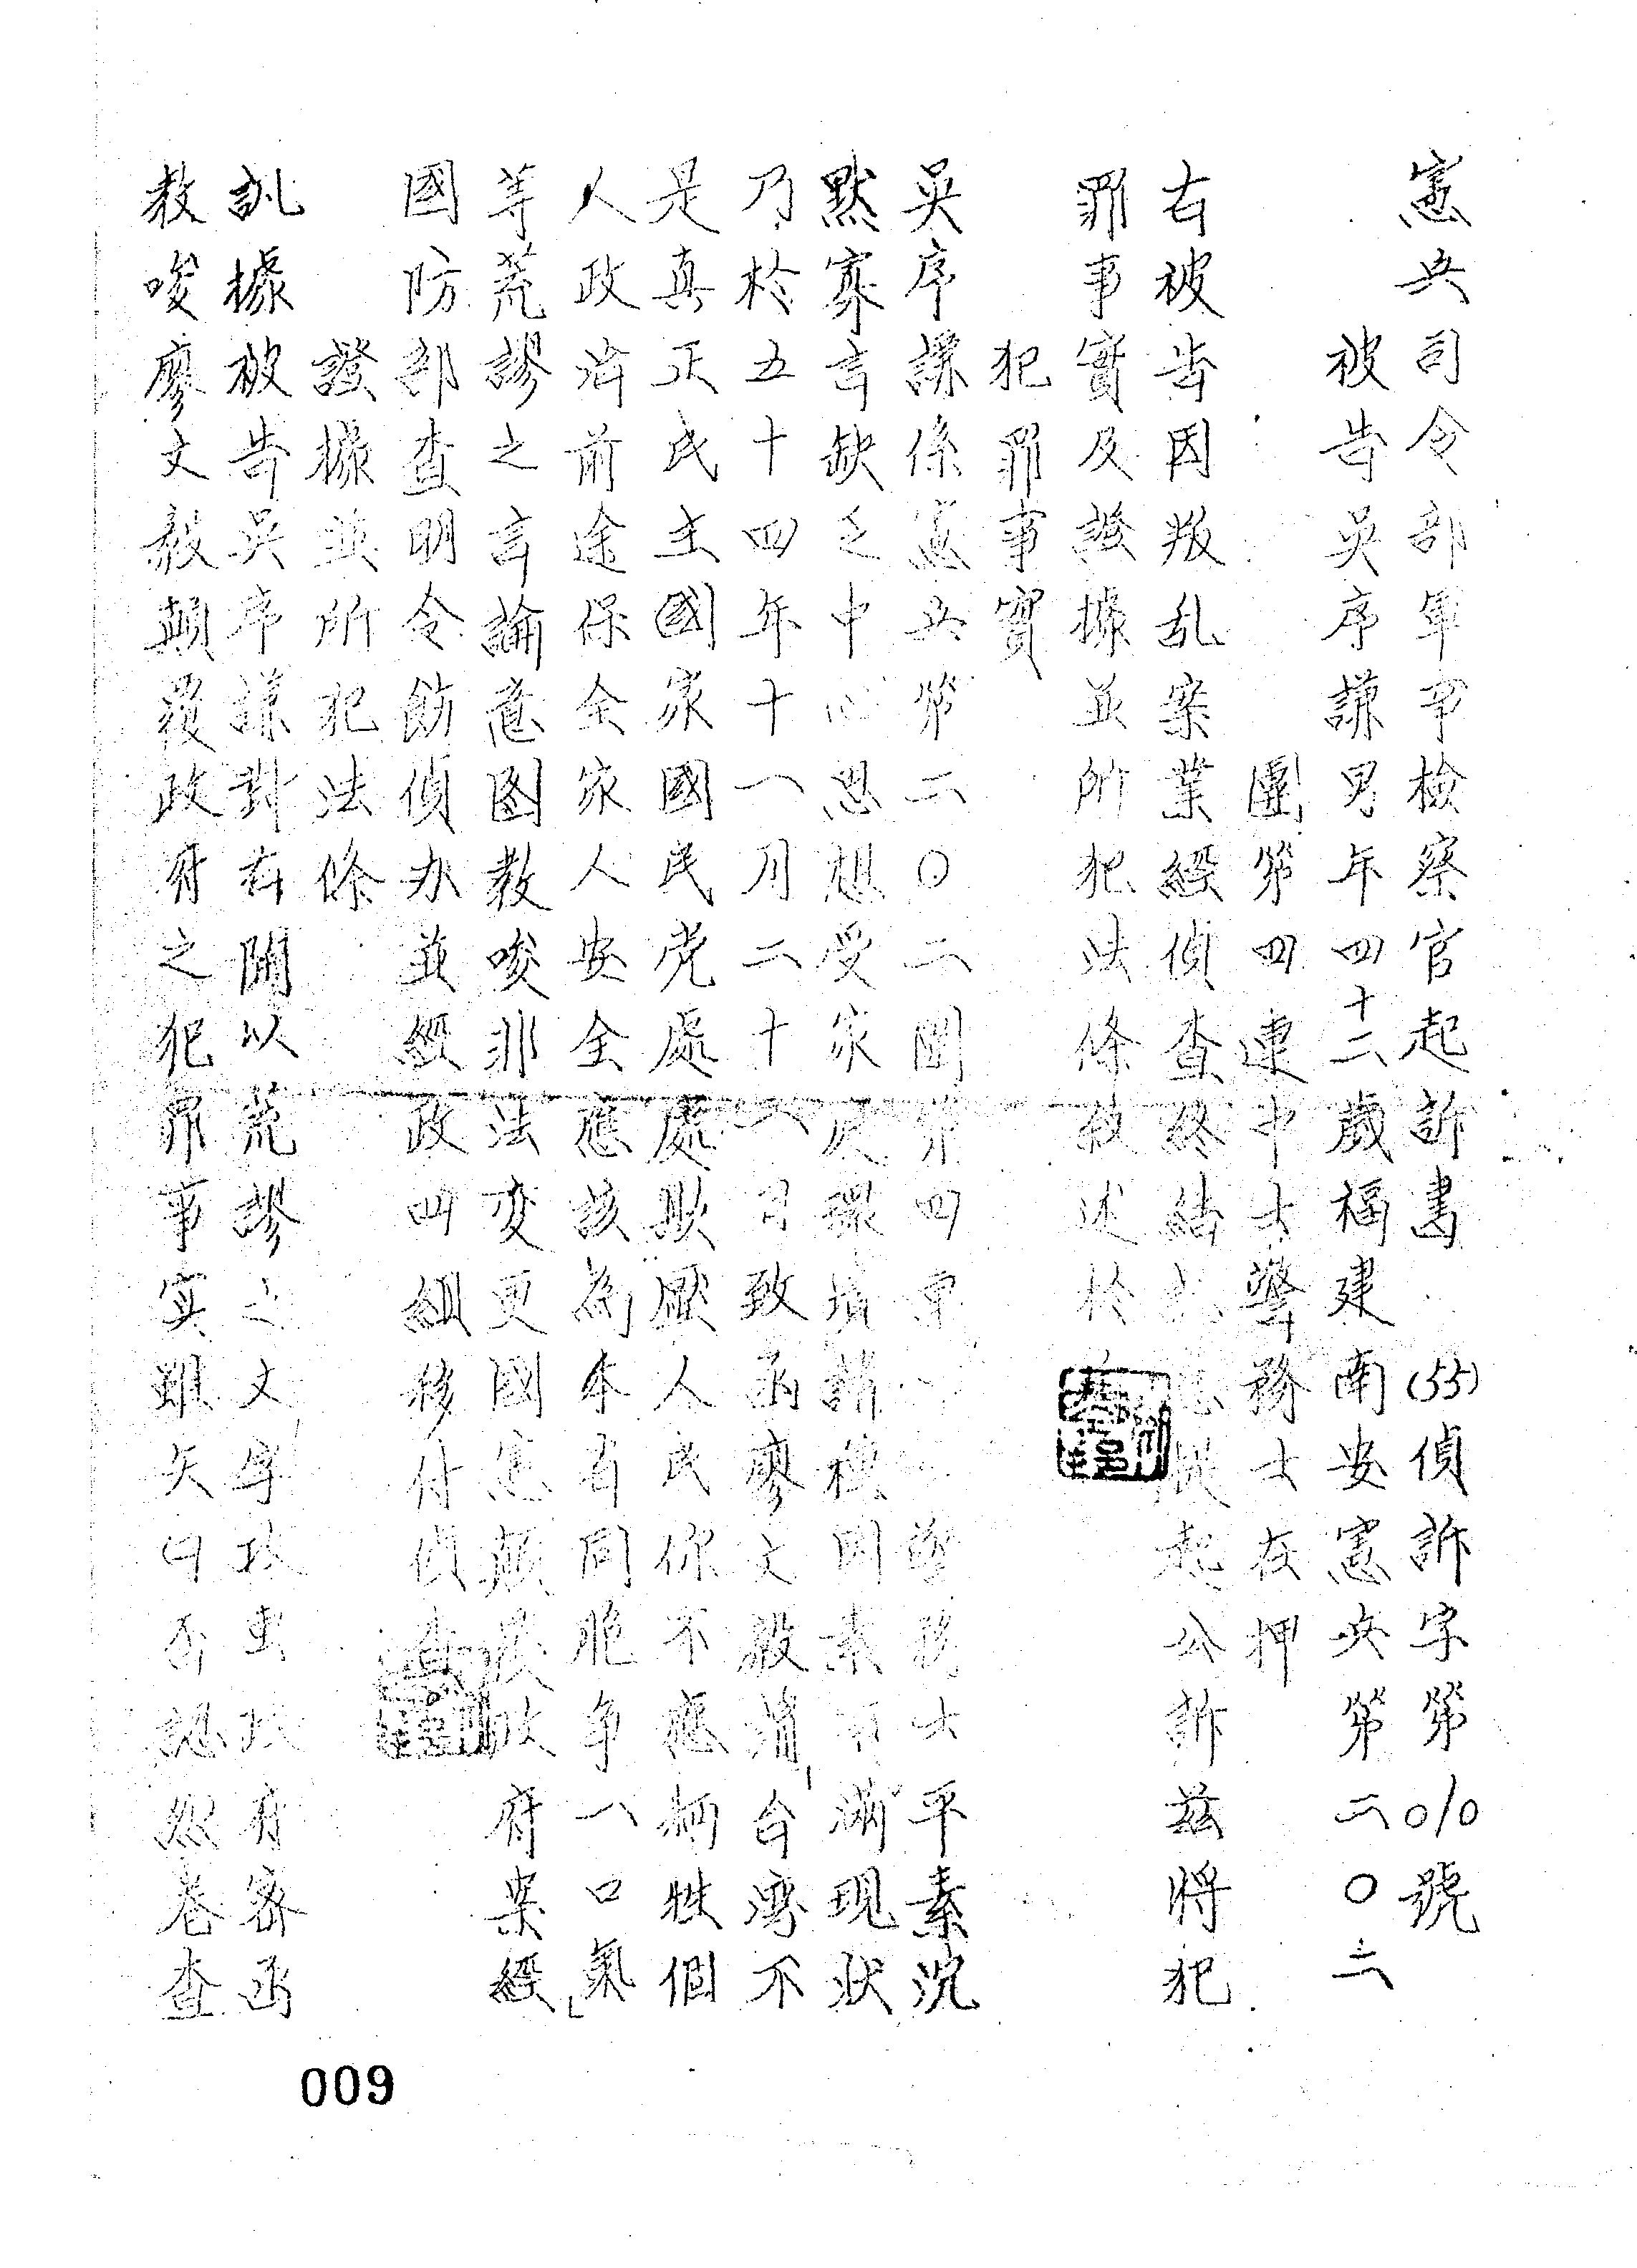 憲兵司令部軍事檢察官起訴書 (55)偵訴字第010號
被告吳序謙男年四十二歲福建南安憲兵第二〇二
團第四連中士警務士在押
右被告因叛乱案業經偵查終結認應提起公訴茲將犯
罪事實及證據並所犯法條敘述於
犯罪事實
吳序謙係憲兵第二〇二團第四連 警務士平素沉
默寡言缺乏中心思想受家庭環境 因素不滿現狀
乃於五十四年十一月二十八日致函廖文毅謂「台灣不
是真正民主國家國民党處處欺壓人民你不應犧牲個
人政治前途保全家人安全應該為本省同胞爭一口氣」
等荒謬之言論意圖教唆非法变更國憲顛覆政府案經
國防部查明令飭偵办並經政四組移付偵查
證據並所犯法條
訊據被告吳序謙對右開以荒謬之文字攻 政府寄函
教唆廖文毅顛覆政府之犯罪事实雖矢口否認然卷查
009